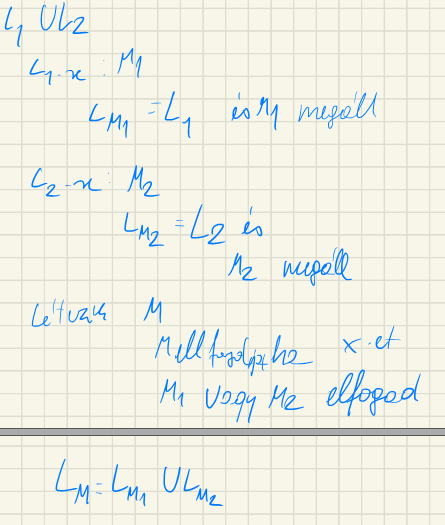 L₁ ∪ L₂
L₁-re: M₁
L_M₁ = L₁ és M₁ megáll
L₂-re: M₂
L_M₂ = L₂ és
M₂ megáll
M
M ha x-et
M₁ vagy M₂ elfogad
L_M = L_M₁ ∪ L_M₂